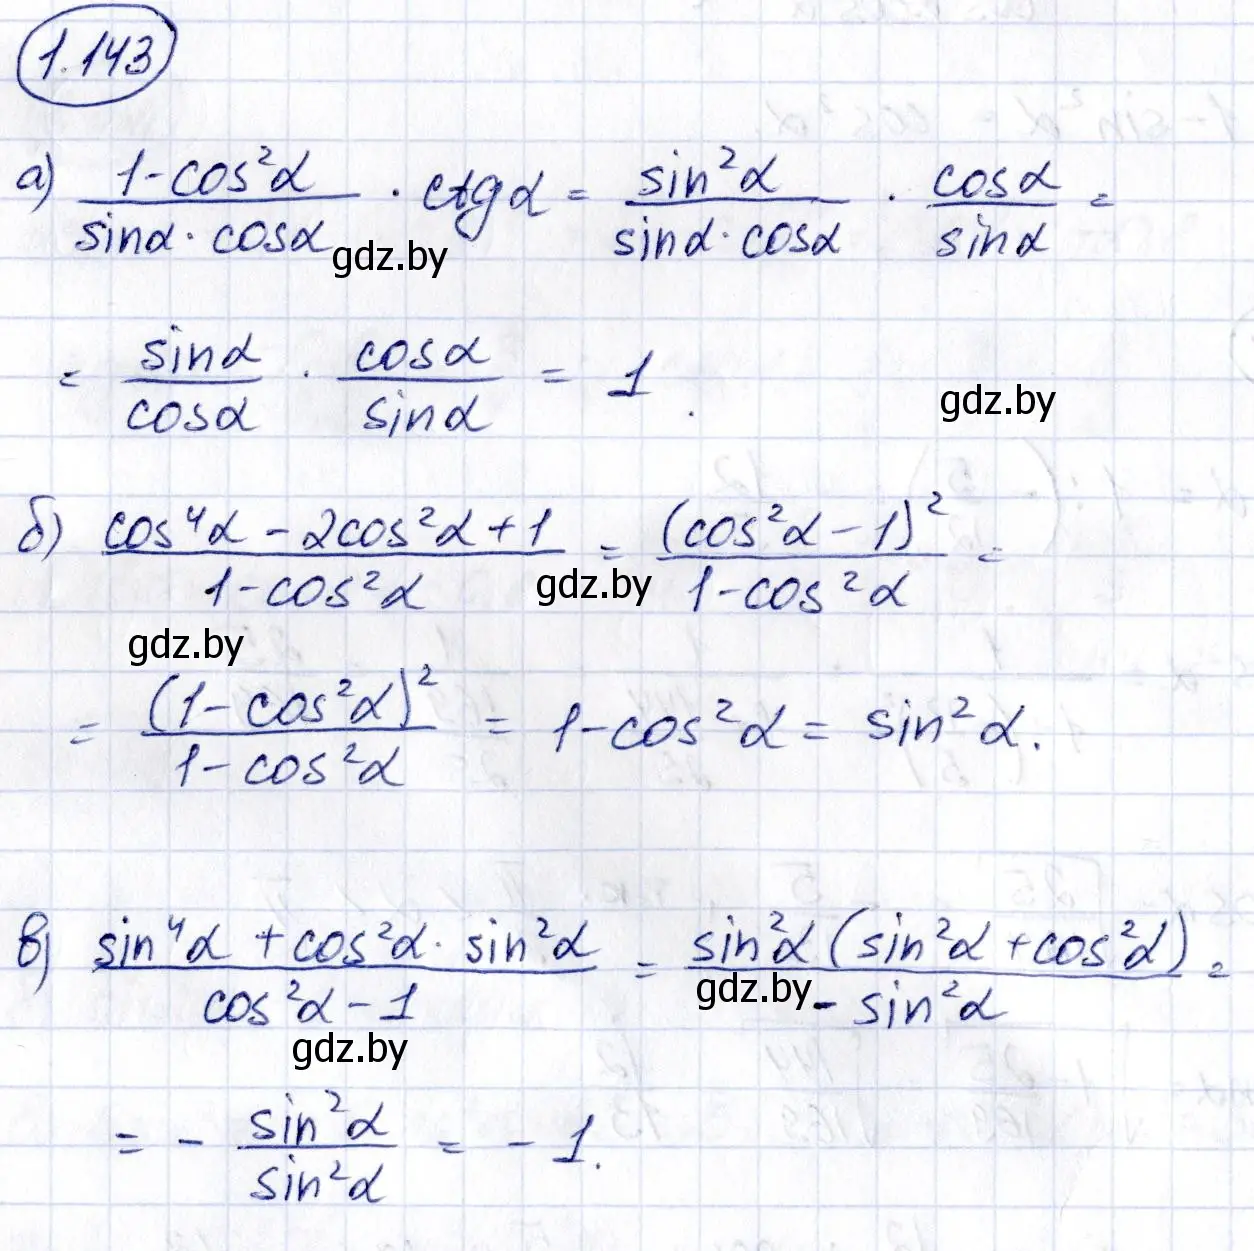 1.143
а) (1-cos²α)/(sinα·cosα) · ctgα = (sin²α)/(sinα·cosα) · (cosα)/(sinα) =
gdz.by
= (sinα)/(cosα) · (cosα)/(sinα) = 1.
gdz.by
б) (cos⁴α - 2cos²α + 1)/(1-cos²α) = ((cos²α - 1)²)/(1-cos²α) =
gdz.by
gdz.by
= ((1-cos²α)²)/(1-cos²α) = 1-cos²α = sin²α.
в) (sin⁴α + cos²α · sin²α)/(cos²α - 1) = (sin²α (sin²α + cos²α))/(-sin²α) =
gdz.by
gdz.by
= - (sin²α)/(sin²α) = -1.